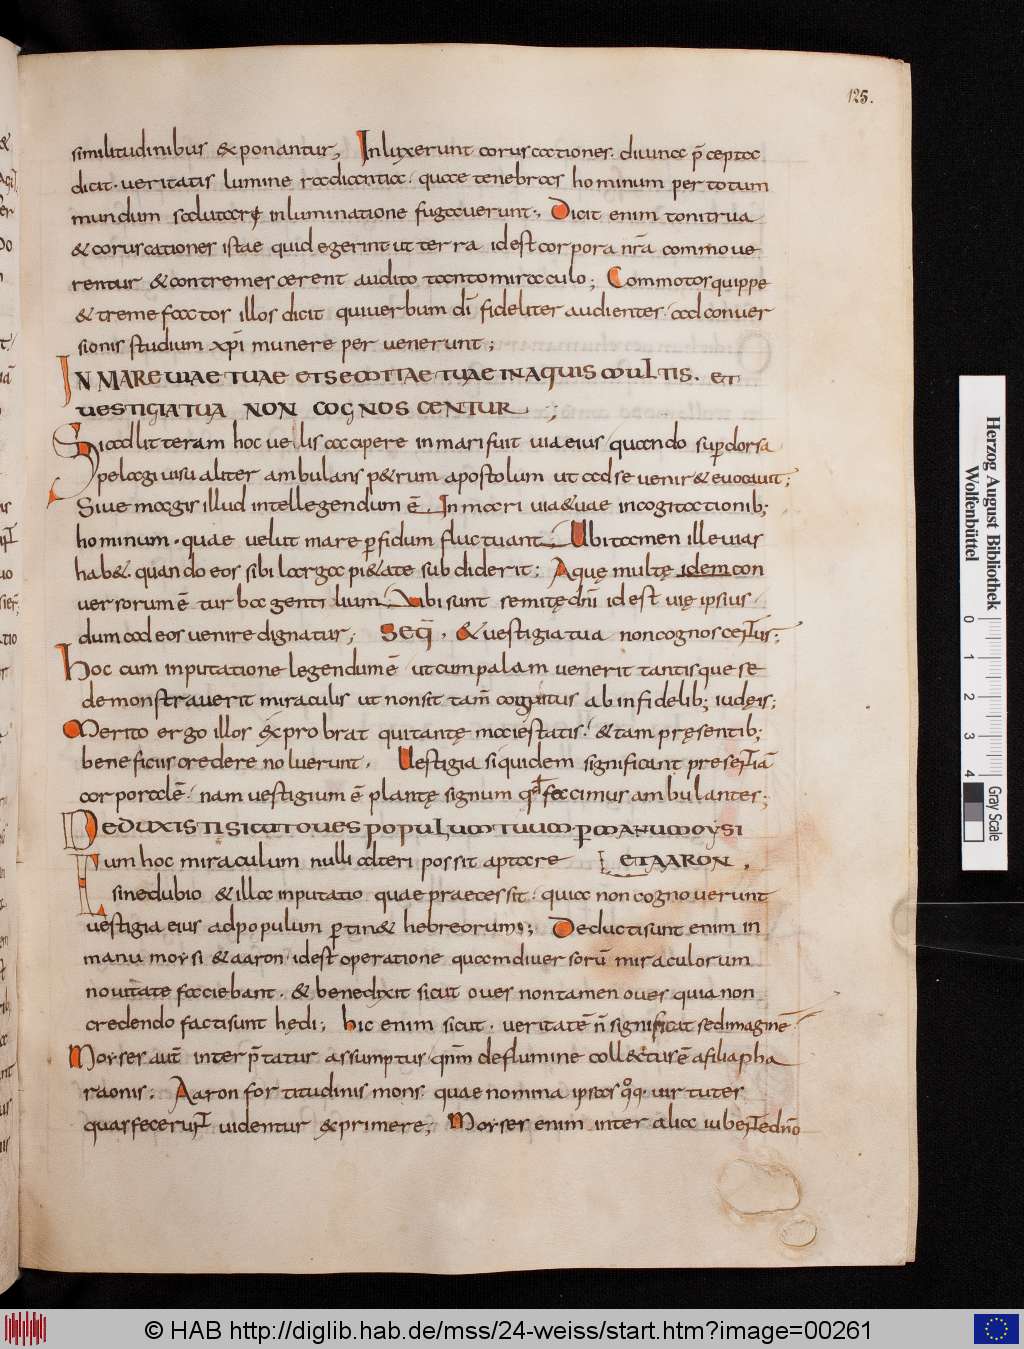 125.
similitudinibus & ponantur; Inluxerunt coruscationes. diuinae p̄cepta
dicit. ueritatis lumine radicantia. quae tenebras hominum per totum
mundum salutarę inluminatione fugauerunt; Dicit enim tonitrua
& coruscationes istae quid egerint ut terra id est corpora nr̄a commoue
rentur & contremescerent audito tanto miraculo; Commotos quippe
& tremefactos illos dicit qui uerbum dī fideliter audientes. ad conuer
sionis studium xp̄i munere peruenerunt;
IN MARE UIAE TUAE ET SEMITAE TUAE IN AQUIS MULTIS. ET
UESTIGIA TUA NON COGNOSCENTUR;
Si ad litteram hoc uellis accipere in mari fuit uia eius quando sup dorsa
pelagi uisu aliter ambulans p&rum apostolum ut ad se uenir& euocauit;
Siue magis illud intellegendum ē. In mari uia&uae in cogitationib;
hominum. quae uelut mare pfidum fluctuant. Ubi tamen ille uias
hab&. quando eos sibi larga pi&ate subdiderit; Aquę multę idem con
uersorum ē turba gentilium. ubi sunt semitę dn̄i id est uię ipsius
dum ad eos uenire dignatur; Seq̄. & uestigia tua non cognoscentur;
Hoc cum inputatione legendum ē ut cum palam uenerit tantisque se
demonstrauerit miraculis ut non sit tam̄ cognitus ab infidelib; iudęis;
Merito ergo illos exprobrat qui tantę maiestatis. & tam pręsentib;
beneficiis credere noluerunt. Uestigia siquidem significant presentiā
corporalē. nam uestigium ē plantę signum qd facimus ambulantes;
DEDUXISTI SICUT OUES POPULUM TUUM P MANU MOYSI
ET AARON.
Cum hoc miraculum nulli alteri possit aptare
sine dubio & illa inputatio quae praecessit. quia non cognouerunt
uestigia eius ad populum ptin& hebreorum; Deducti sunt enim in
manu moysi & aaron. id est operatione quam diuersorū miraculorum
nouitate faciebant. & bene dixit sicut oues non tamen oues quia non
credendo facti sunt hędi; hic enim sicut. ueritatē n̄ significat sed imaginē.
Moyses aut̄ interp̄tatur assumptus qn̄m de flumine collectus ē a filia pha
raonis. Aaron fortitudinis mons. quae nomina ipsas qoq. uirtutes
quas fecerunt uidentur exprimere; Moyses enim inter alia iubente dn̄o
Herzog August Bibliothek
Wolfenbüttel
0 1 2 3 4
Gray Scale
© HAB http://diglib.hab.de/mss/24-weiss/start.htm?image=00261